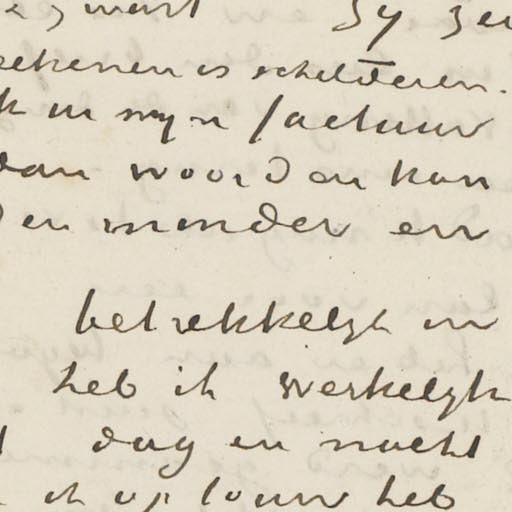 zwart Zy ze
eekenen is schilderen.
k in myn factuur
dan woorden kan
en minder en
betrekkelyk en
heb ik werkelyk
dag en nacht
ik op touw heb